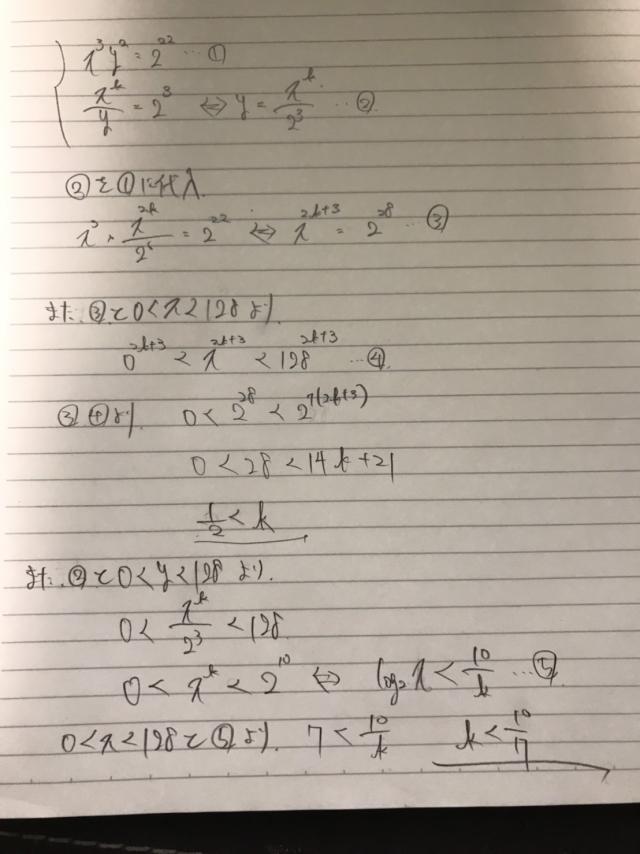 x³y² = 2²² … ①
x^k/y = 2³ ⇔ y = x^k/2³ … ②
②を①に代入
x³ × x^{2k}/2⁶ = 2²² ⇔ x^{2k+3} = 2²⁸ … ③
また、③と0<x<128より
0^{2k+3} < x^{2k+3} < 128^{2k+3} … ④
③④より 0 < 2²⁸ < 2^{7(2k+3)}
0 < 28 < 14k + 21
1/2 < k
また、②と0<y<128より
0 < x^k/2³ < 128
0 < x^k < 2¹⁰ ⇔ log₂x < 10/k … ⑤
0<x<128と⑤より 7 < 10/k k < 10/7